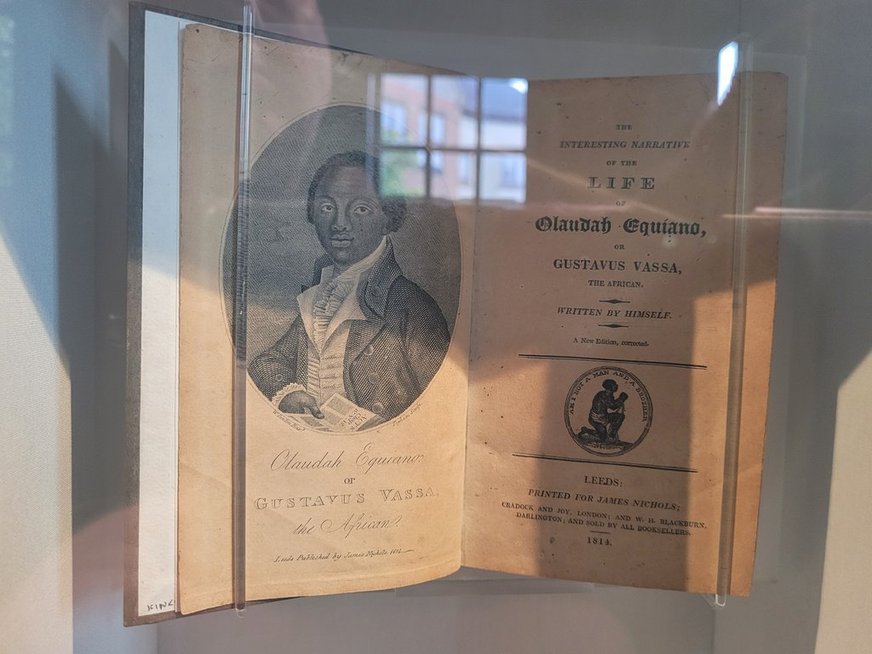 Olaudah Equiano:
or
GUSTAVUS VASSA,
the African.
Leeds Published by James Nichols 1814
THE
INTERESTING NARRATIVE
OF THE
LIFE
OF
Olaudah Equiano,
OR
GUSTAVUS VASSA,
THE AFRICAN.
WRITTEN BY HIMSELF.
A New Edition, corrected.
AM I NOT A MAN AND A BROTHER
LEEDS:
PRINTED FOR JAMES NICHOLS;
CRADOCK AND JOY, LONDON; AND W. H. BLACKBURN,
DARLINGTON; AND SOLD BY ALL BOOKSELLERS.
1814.